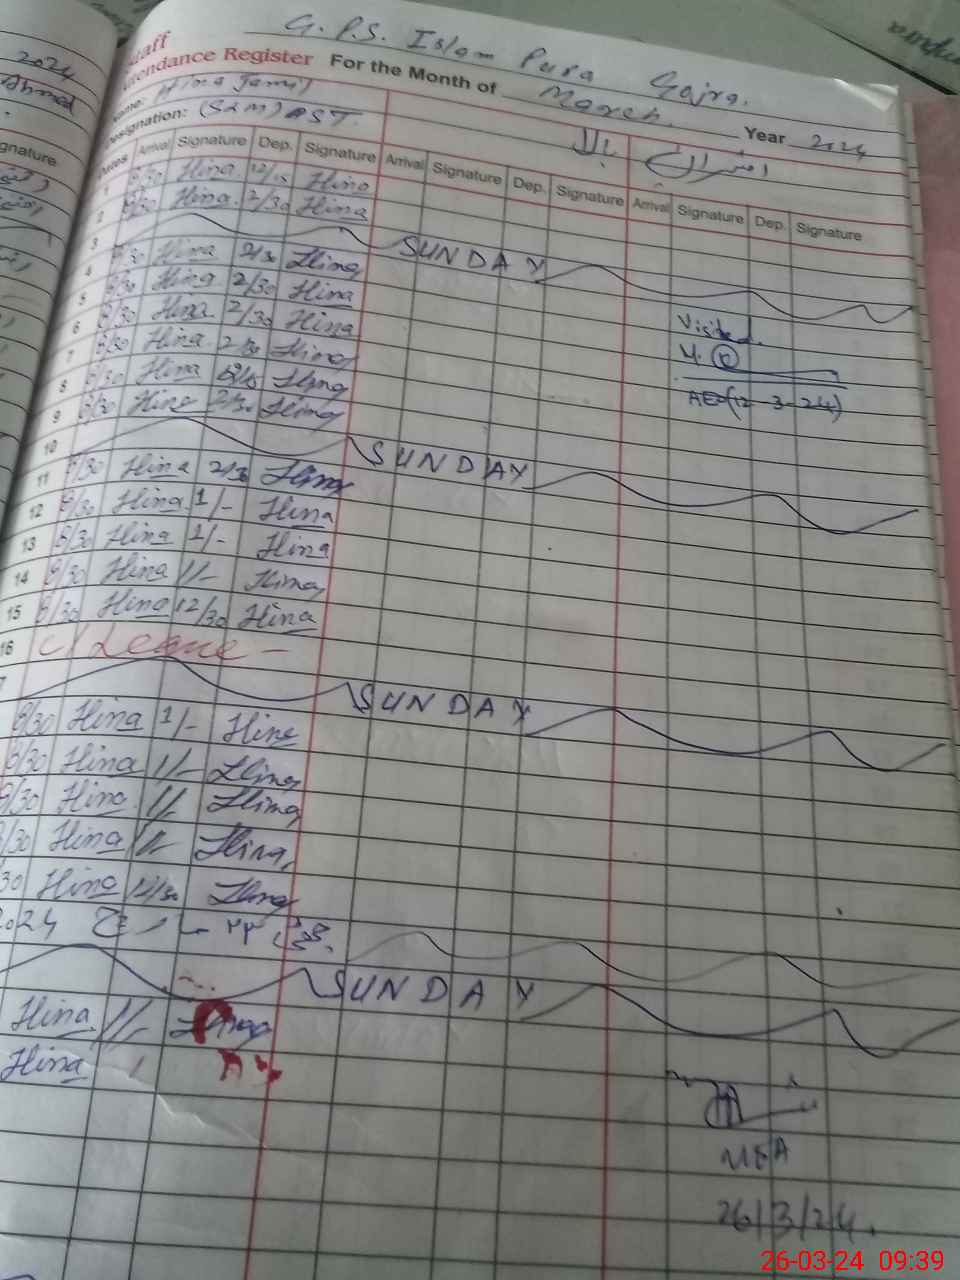 G.P.S. Islam Pura Gojra.
Staff
Attendance Register For the Month of March Year 2024
2024
Ahmed
Name: Hina Jamil
Designation: (S&M) EST.
Dates Arrival Signature Dep. Signature Arrival Signature Dep. Signature Arrival Signature Dep. Signature
1 8/30 Hina 12/15 Hina
2 8/30 Hina 2/30 Hina
3 SUNDAY
4 8/30 Hina 2/30 Hina
5 8/30 Hina 2/30 Hina
6 8/30 Hina 2/30 Hina
7 8/30 Hina 2/30 Hina
Visited.
8 8/30 Hina Hina
9 8/30 Hina 2/30 Hina
AEO (12-3-24)
10 SUNDAY
11 8/30 Hina 2/30 Hina
12 8/30 Hina 1/- Hina
13 8/30 Hina 1/- Hina
14 8/30 Hina 1/- Hina
15 8/30 Hina 12/30 Hina
16 C/Leave -
SUNDAY
8/30 Hina 1/- Hina
8/30 Hina 1/- Hina
8/30 Hina 1/- Hina
8/30 Hina 1/- Hina
30 Hina 12/30 Hina
2024
SUNDAY
Hina 1/- Hina
Hina
MEA
26/3/24.
26-03-24 09:39